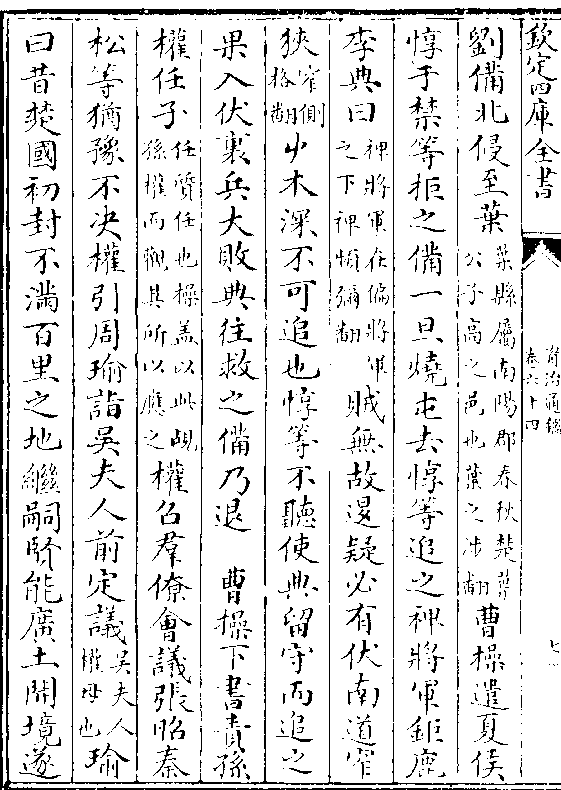 欽定四庫全書
資治通鑑
卷六十四
七
劉備北侵至葉葉縣屬南陽郡春秋楚葉公子高之邑也葉之涉翻曹操遣夏侯
惇于禁等拒之備一旦燒屯去惇等追之裨將軍鉅鹿
李典曰裨將軍在偏將軍之下裨頻彌翻賊無故退疑必有伏南道窄
狹窄側格翻屮木深不可追也惇等不聽使典留守而追之
果入伏裏兵大敗典往救之備乃退　曹操下書責孫
權任子任質任也操盖以此覘孫權而觀其所以應之權召羣僚會議張昭秦
松等猶豫不决權引周瑜詣吳夫人前定議吳夫人權母也瑜
曰昔楚國初封不滿百里之地繼嗣賢能廣土開境遂